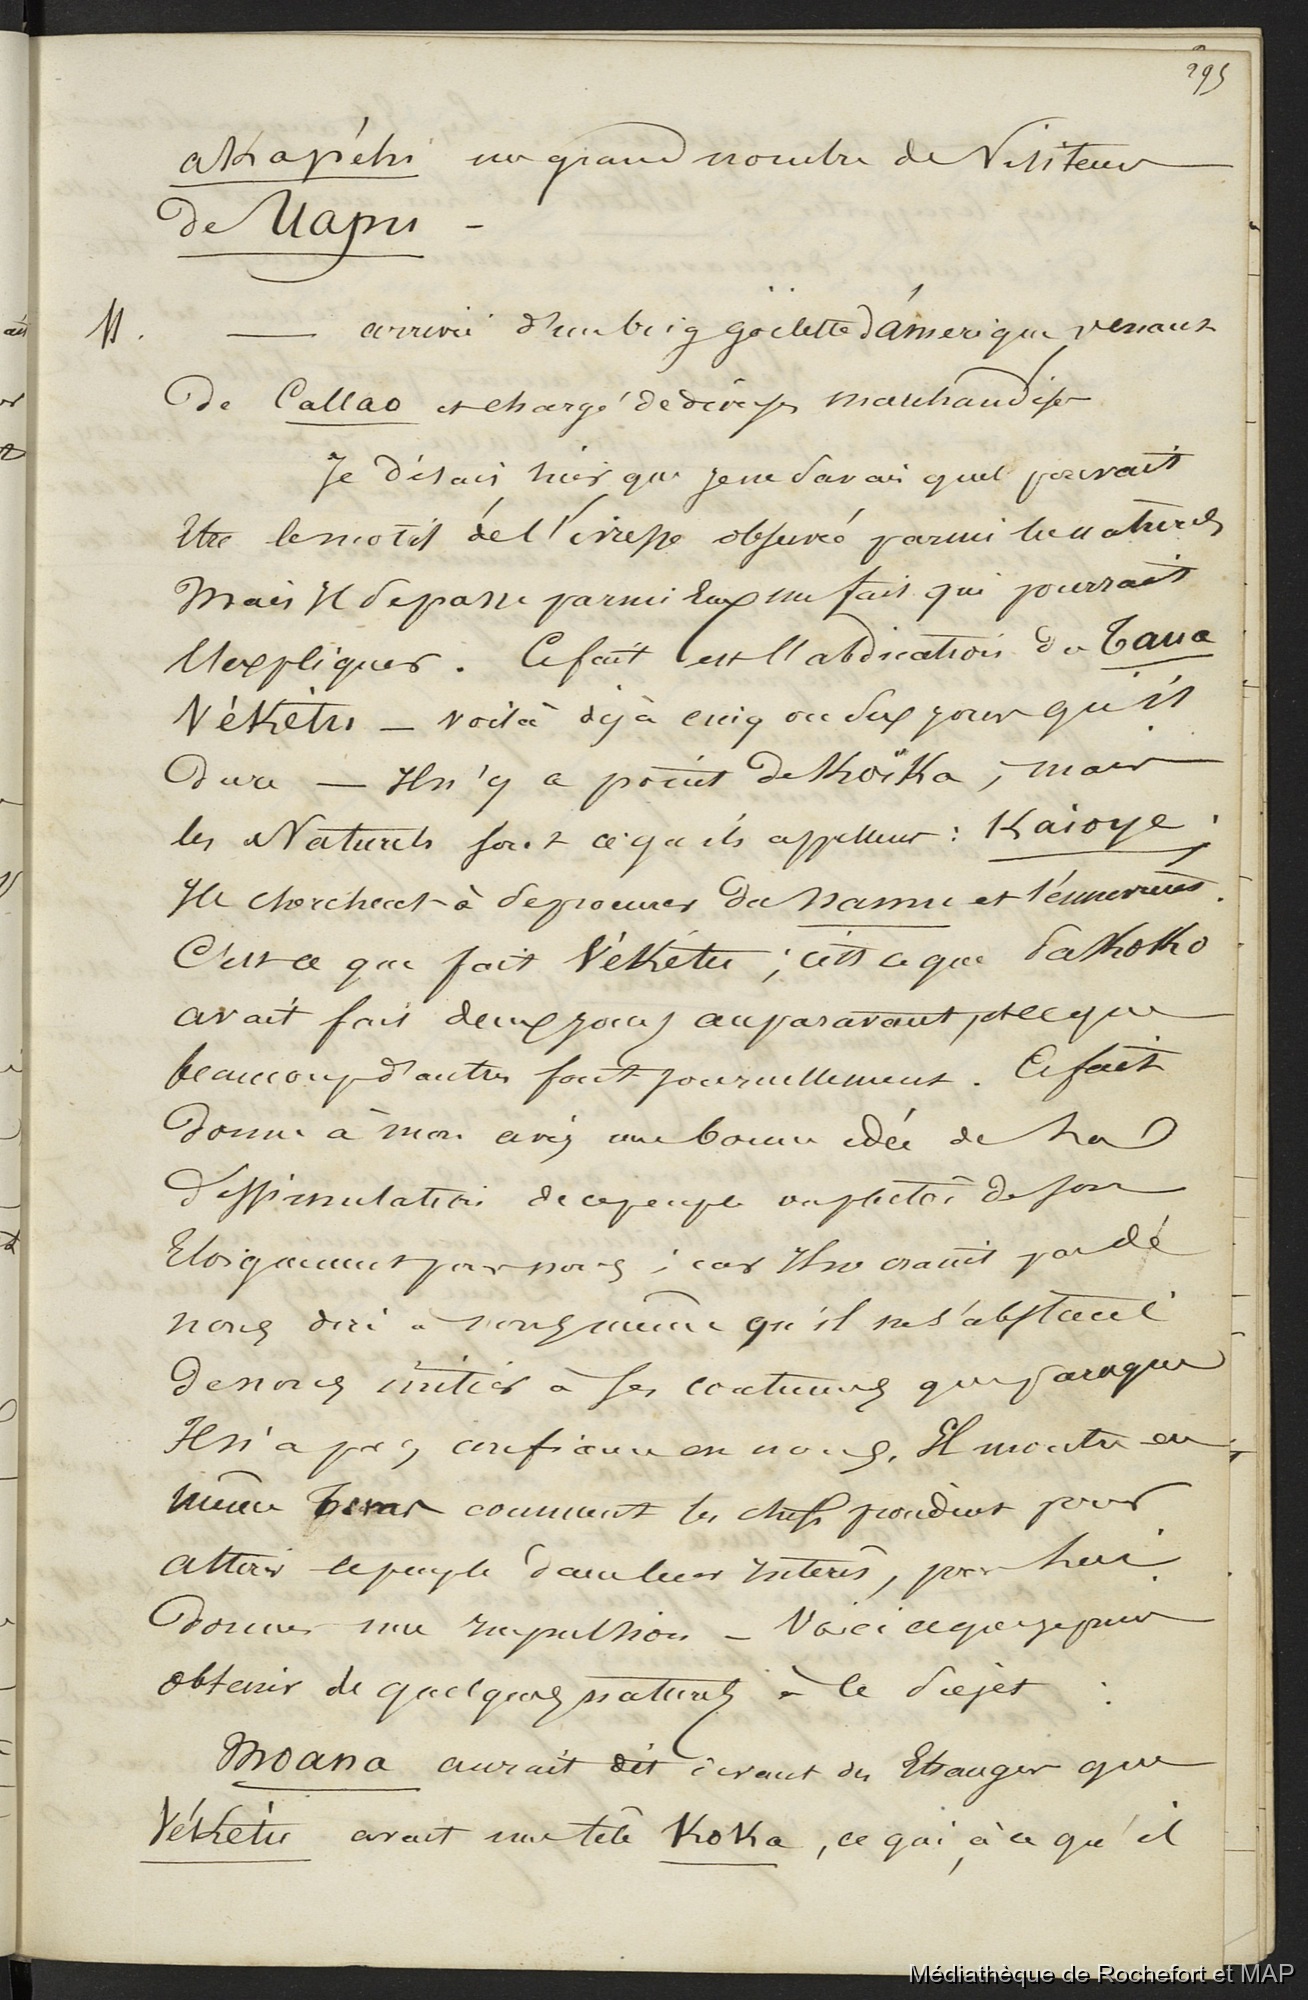 295
akapéhi un grand nombre de Visiteurs
de Uapu -
11. — arrivée d'un brig göelette d'ámerique venant
de Callao et chargé de diverses marchandises
Je disais hier que je ne savais quel pouvait
être le motif de l'ivresse observée parmi les naturels
Mais Il se passe parmi Eux un fait qui pourrait
l'expliquer. Ce fait est l'abdication du Taua
Vékétu — voilà déjà cinq ou six jours qu'il
dure — Il n'y a point de Koïka, mais
les Naturels font ce qu'ils appellent : Kaioye ;
Ils cherchent à se procurer du namu et s'énnivrent.
C'est ce que fait Vékétu ; c'est ce que Pakoko
avait fait deux jours auparavant, et ce que
beaucoup d'autres font journellement. Ce fait
donne à mon avis une bonne idée de la
dissimulation de ce peuple ou plutôt de son
Eloignement pour nous ; car Il ne craint pas de
nous dire à nous même qu'il ne s'abstient
de nous initier à ses coutumes que parceque
Il n'a pas confiance en nous. Il montre en
même tems comment les chefs s'y prennent pour
attirer le peuple dans leur Interêt, pour lui
donner une Impulsion — Voici ce que je puis
obtenir de quelques naturels à ce sujet :
Moana aurait dit devant des Etrangers que
Vékétu avait une tête Koka, ce qui, à ce qu'il
Médiathèque de Rochefort et MAP